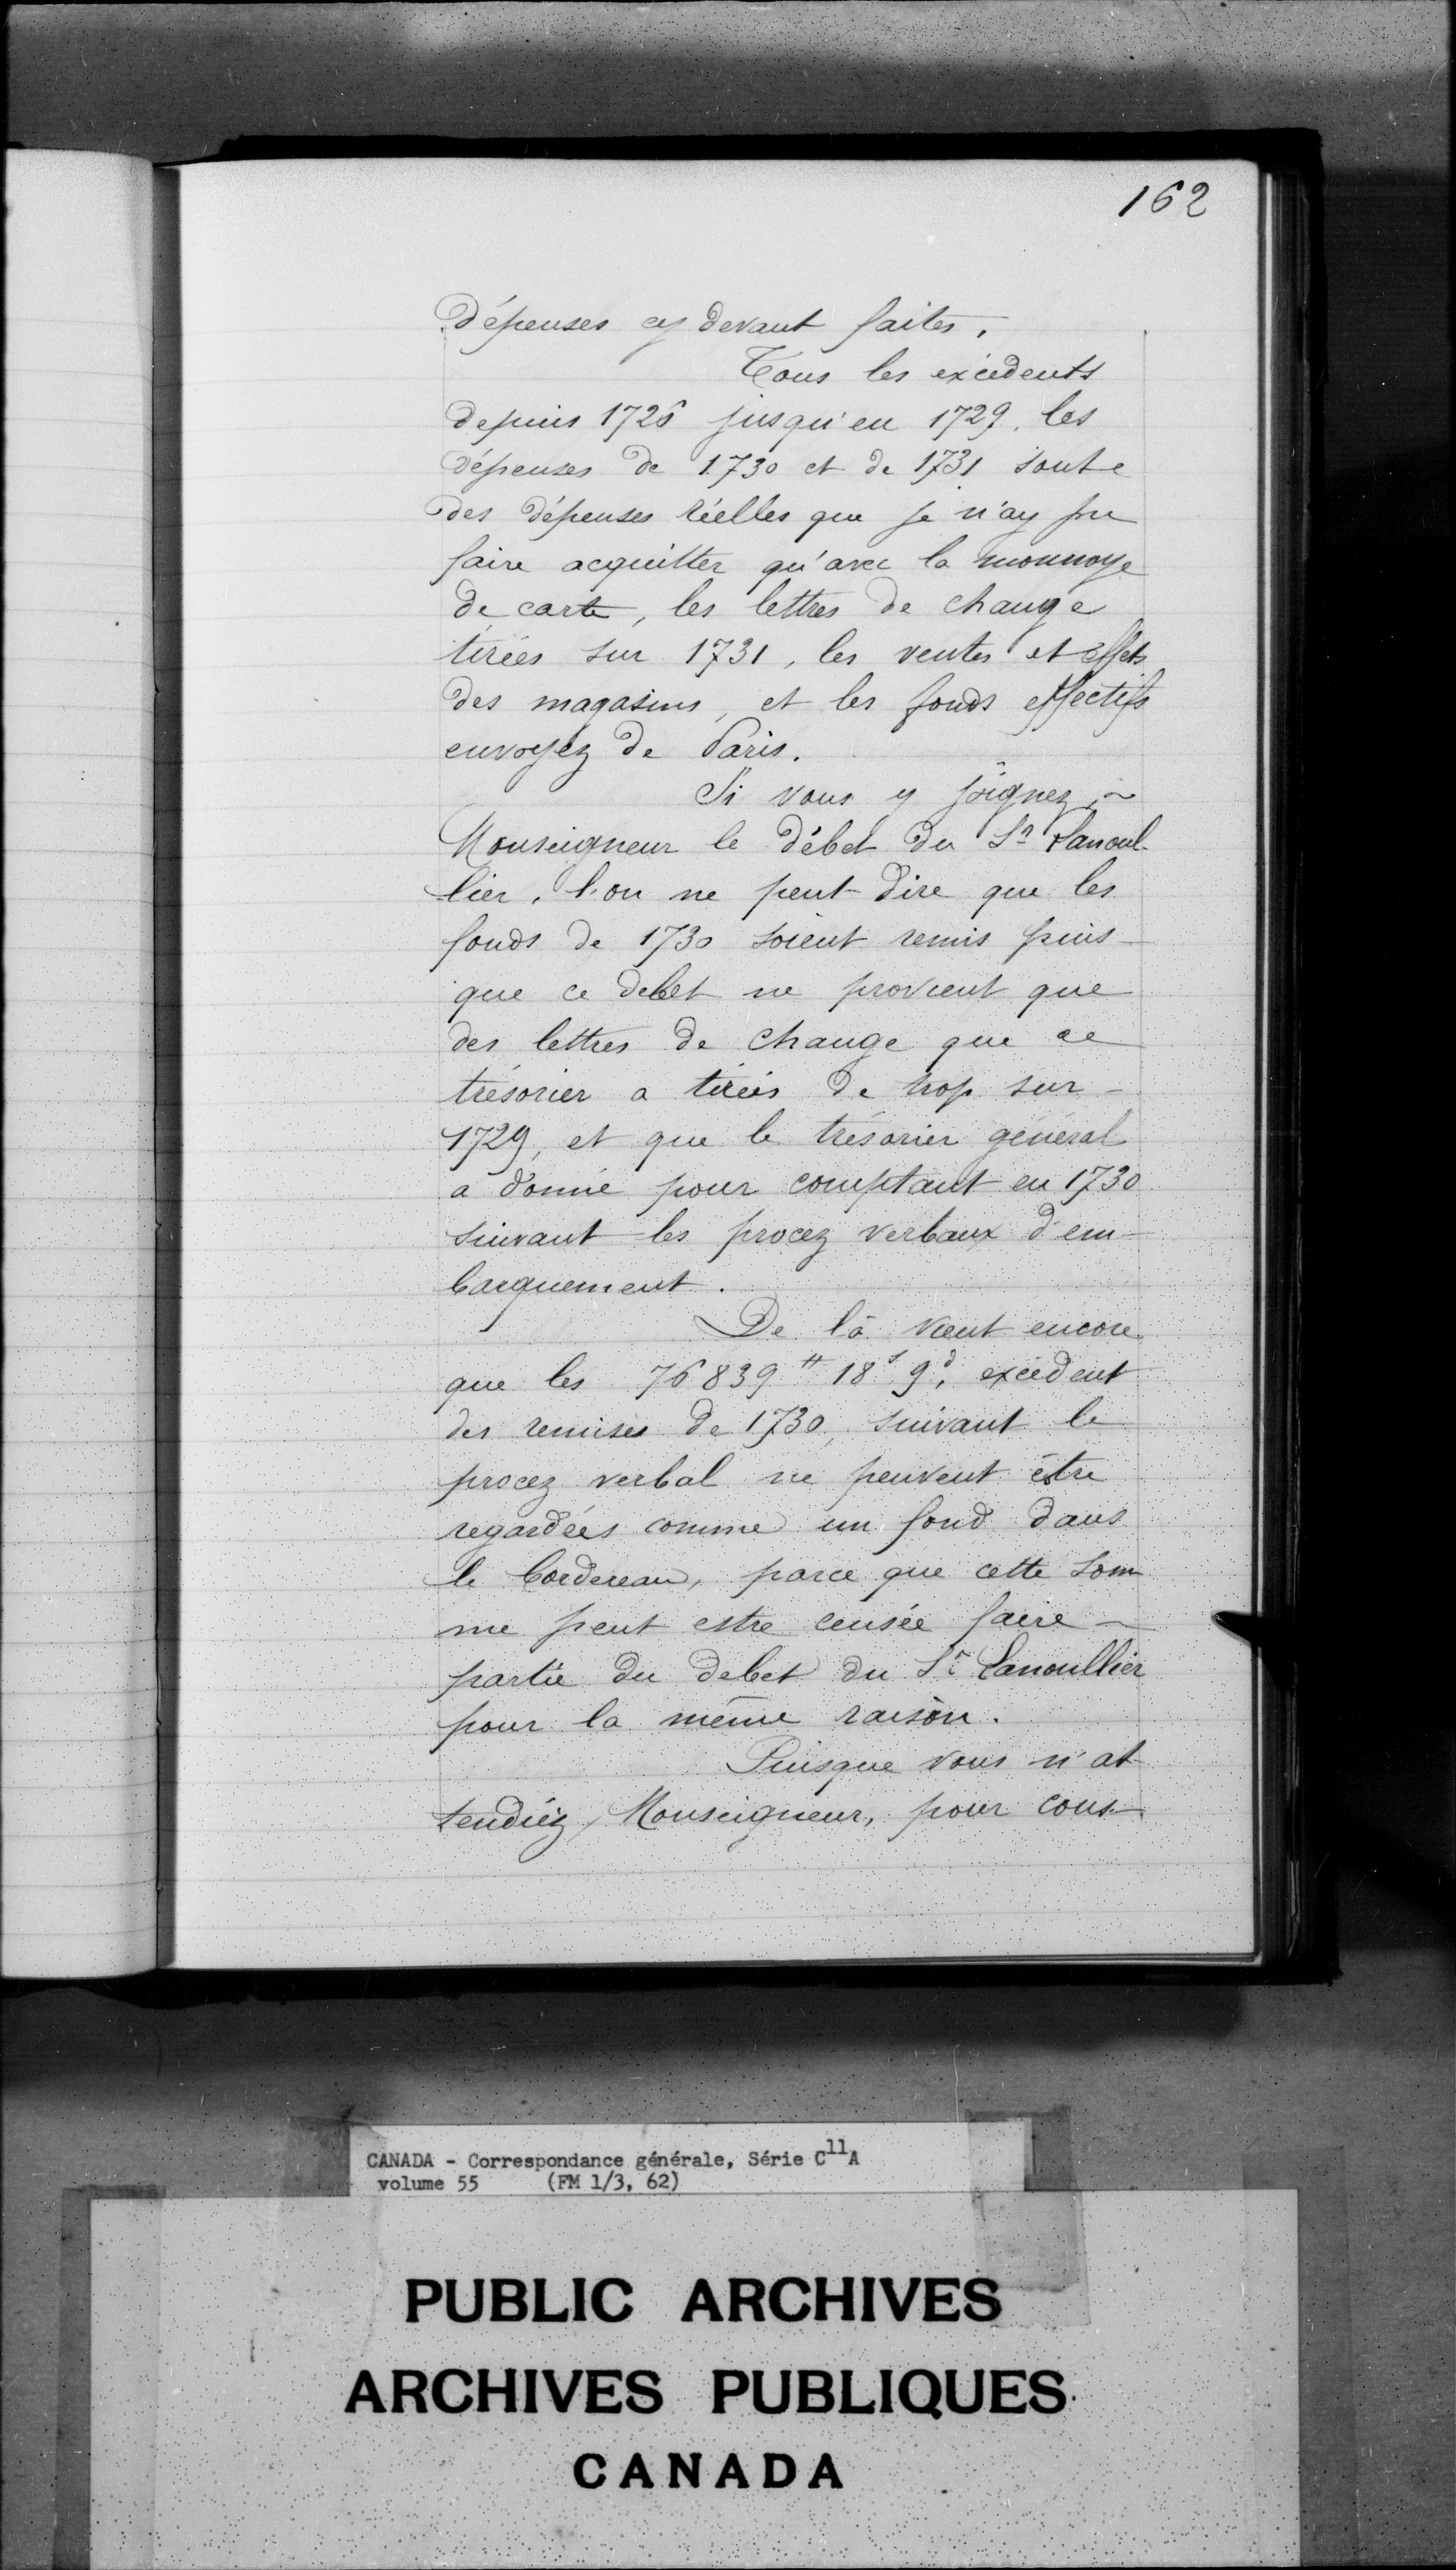 162
dépenses cy devant faites.
Tous les excédents
depuis 1726 jusqu'en 1729, les
dépenses de 1730 et de 1731 sont
des dépenses réelles que je n'ay pu
faire acquitter qu'avec la monnoye
de carte, les lettres de change
tirées sur 1731, les ventes et effets
des magasins, et les fonds effectifs
envoyez de Paris.
Si vous y joignez,
Monseigneur le débet du Sr Lanoul-
lier, l'on ne peut dire que les
fonds de 1730 soient remis puis-
que ce debet ne provient que
des lettres de change que ce
trésorier a tirées de trop sur
1729, et que le trésorier général
a donné pour comptant en 1730
suivant les procez verbaux d'em-
barquement.
De là vient encore
que les 76839tt 18s 9d, excédent
des remises de 1730, suivant le
procez verbal ne peuvent être
regardées comme un fond dans
le bordereau, parce que cette som-
me peut estre censée faire
partie du debet du Sr Lanoullier
pour la même raison.
Puisque vous n'at
tendiéz, Monseigneur, pour cons-
CANADA - Correspondance générale, Série C11A
volume 55 (FM 1/3, 62)
PUBLIC ARCHIVES
ARCHIVES PUBLIQUES
CANADA